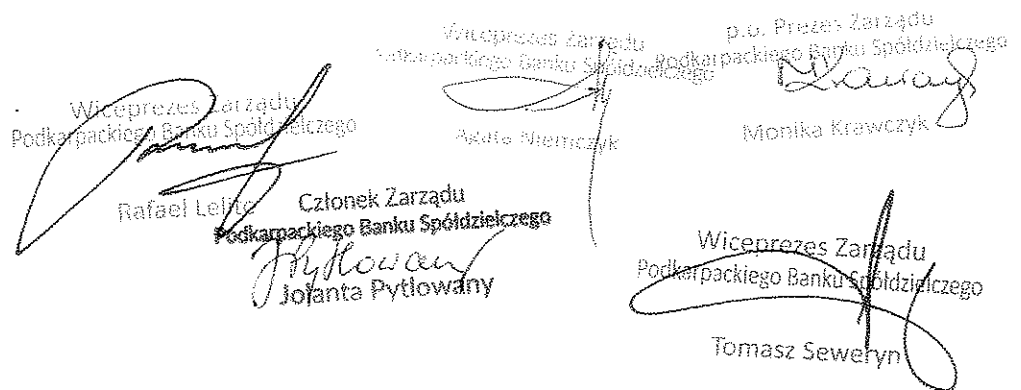 Wiceprezes Zarządu
Podkarpackiego Banku Spółdzielczego
Agata Niemczyk
p.o. Prezes Zarządu
Podkarpackiego Banku Spółdzielczego
Monika Krawczyk
Wiceprezes Zarządu
Podkarpackiego Banku Spółdzielczego
Rafael Lelito
Członek Zarządu
Podkarpackiego Banku Spółdzielczego
Jolanta Pytlowany
Wiceprezes Zarządu
Podkarpackiego Banku Spółdzielczego
Tomasz Seweryn